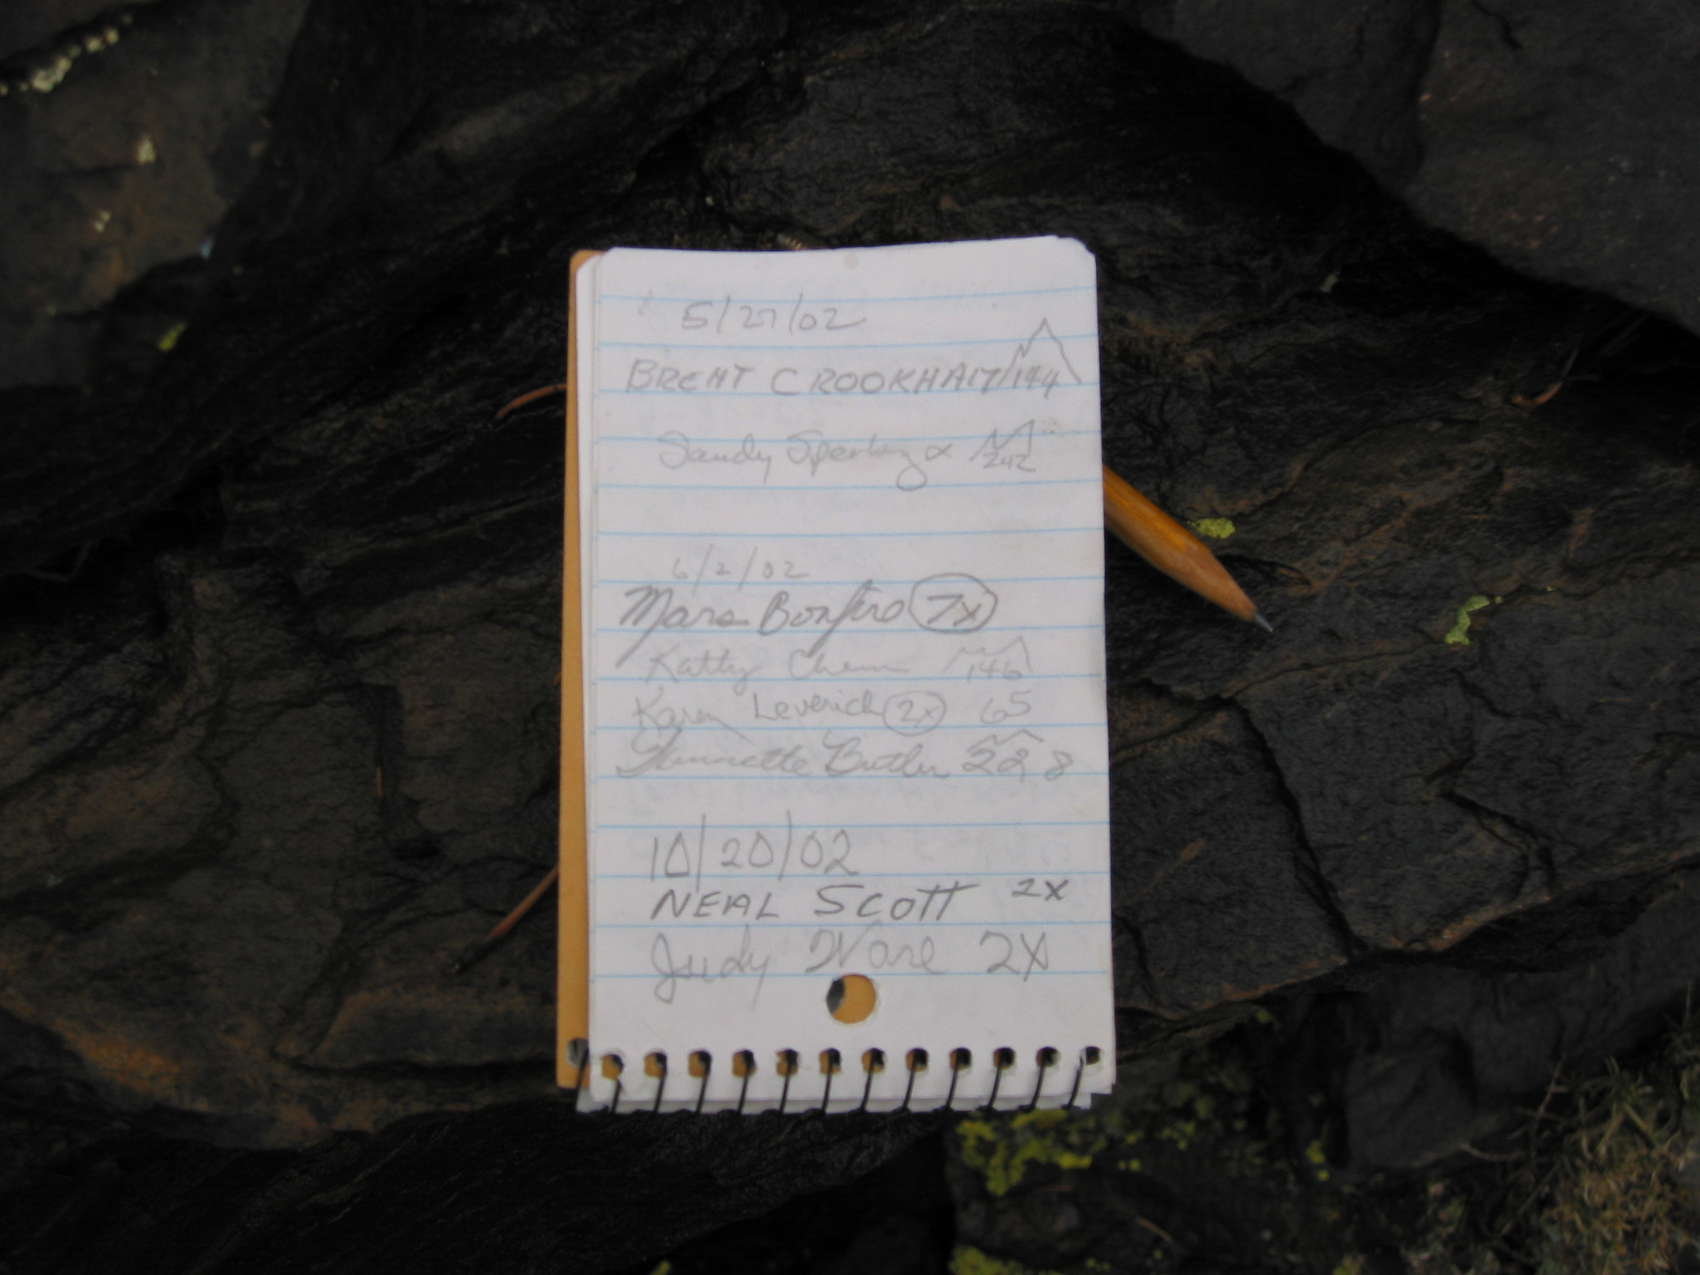 5/27/02
BRENT CROOKHAM 144
Sandy Sperling 242
6/2/02
Mars Bonfire 7x
Kathy Cheever 146
Karen Leverich 2x 65
Butler 228
10/20/02
NEAL SCOTT 2X
Judy Ware 2X